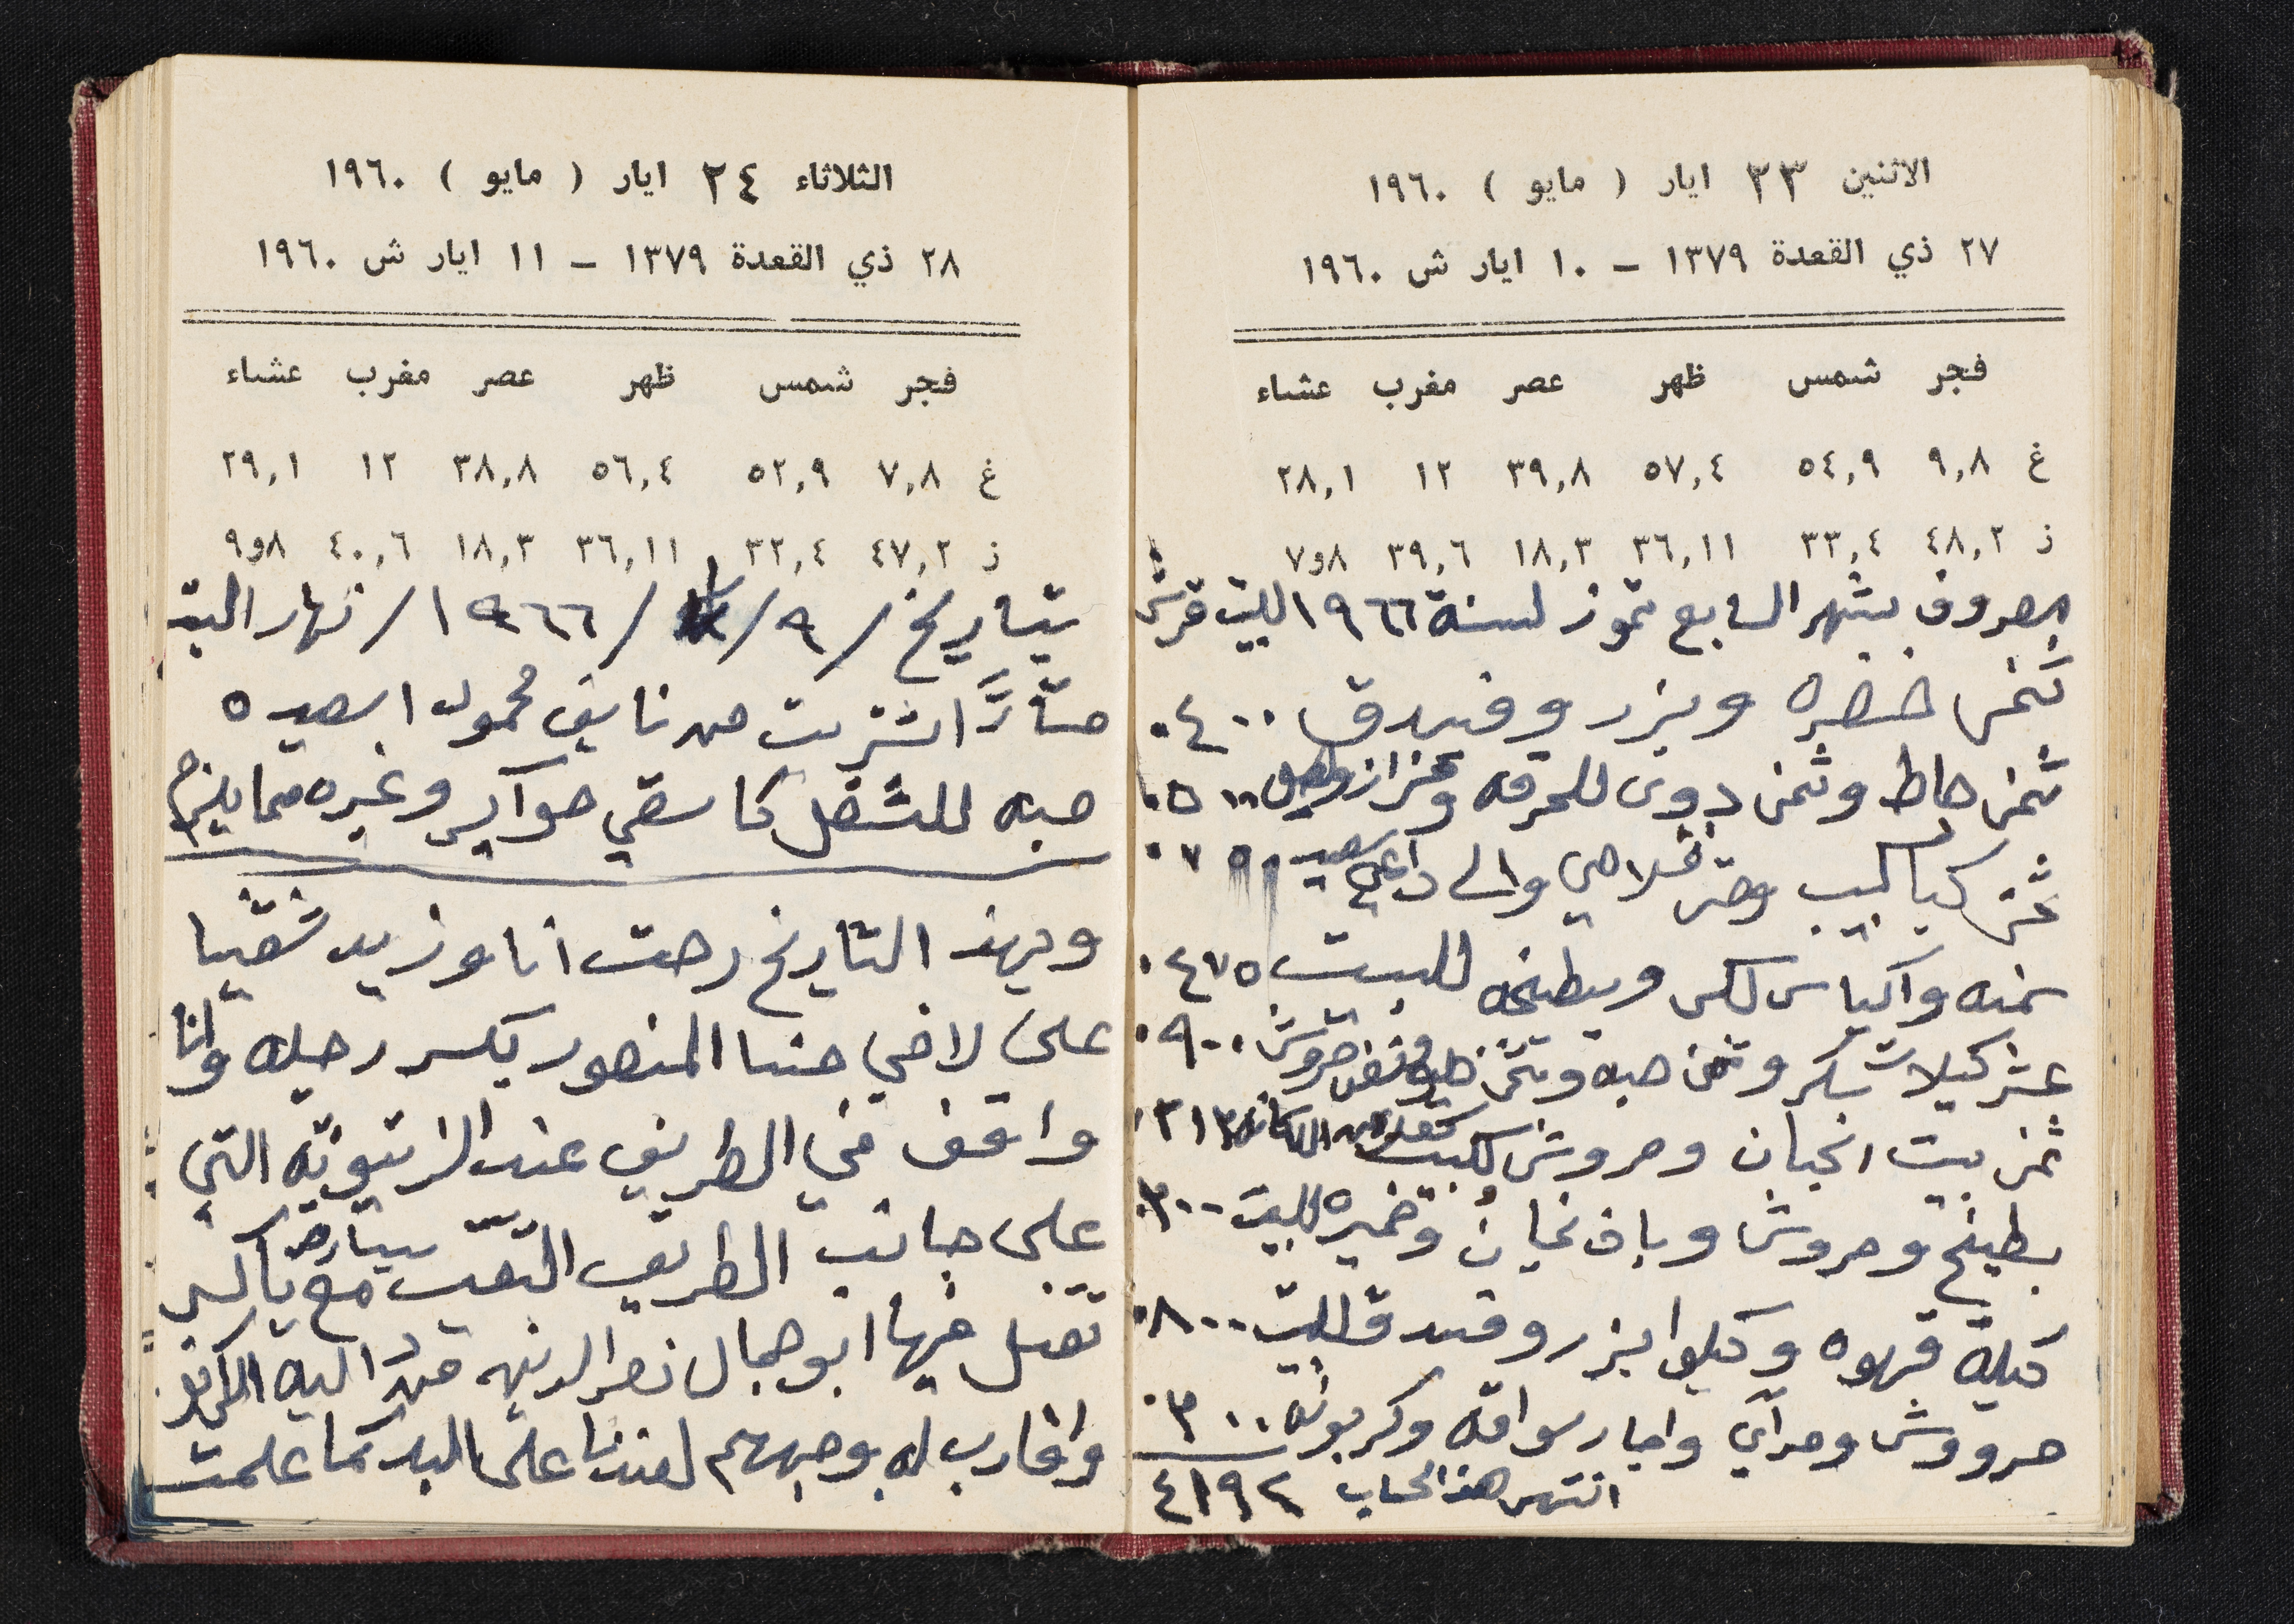 الاثنين ٢٣ ايار ( مايو ) ١٩٦٠
٢٧ ذي القعدة ١٣٧٩ – ١٠ ايار ش ١٩٦٠
فجر شمس ظهر عصر مغرب عشاء
غ ٩,٨ ٥٤,٩ ٥٧,٤ ٣٩,٨ ١٢ ٢٨,١
ز ٤٨,٢ ٣٣,٤ ٣٦,١١ ١٨,٣ ٣٩,٦ ٧و٨
مصروف بشهر السابع تموز لسنة ١٩٦٦ للبيت قرش
ثمن خضره وبزر وفسدق ٤٠٠
ثمن طاط وثمن دوى للحرقه ٥٠٠
ثمن كباكيب والى
سمنه واكياس لكس وبطيخه للبيت ٤٧٥
عشر كيلات سكر وثمن حبه وثمن ٩٠٠
ثمن بيت انجبان ومروش للبيت
بطيخ ومروش وباذنجان وخميره للبيت ٣٠٠
كيلة قهوه وكيلو بزر وفسدق للبيت ٨٠٠
مرووش ومرآي واجار سواقه وكربونه ٣٠٠
انتهى هذا الحساب ٤١٩٢
الثلاثاء ٢٤ ايار ( مايو ) ١٩٦٠
٢٨ ذي القعدة ١٣٧٩ – ١١ ايار ش ١٩٦٠
فجر شمس ظهر عصر مغرب عشاء
غ ٧,٨ ٥٢,٩ ٥٦,٤ ٣٨,٨ ١٢ ٢٩,١
ز ٤٧,٢ ٣٢,٤ ٣٦,١١ ١٨,٣ ٤٠,٦ ٩و٨
بتاريخ /٩/ /١٩٦٦/ نهار
اشتريت من نايف محمود
حبه للشغل كا سقي حوآكير وغيره مما يلزم
وبهذ التاريخ رحت انا وزيد شقينا
على لاخي حنا المنصور بكسر رجله وانا
واقف في الطريق عند الزيتونه التي
على جانب الطريق التقيت مع سيارة تاكسي
تقل فيها ابو جمال نصر الدين
واقارب له بوجههم لعندنا على البلد كما علمت